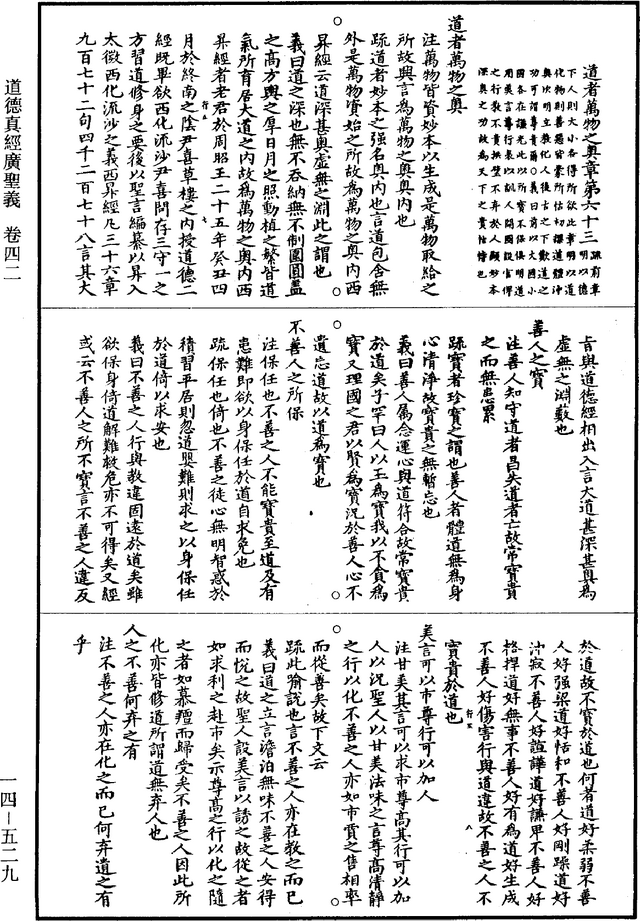 道者萬物之奧章第六十三
疏前章明以德
下人則大小各得所欲此章明以道
化物則善惡皆蒙所怙初標道體沖
奥明主教化人後古之下歎道之
功可謂尊貴義曰前以大國小
國各在謙光此以所寶不保俱明道
用美言尊行表以訓人開國設官俾
之行教不貴拱璧不弃於人顯妙本
深奥之功故為天下之貴怙恃也
道者萬物之奧
注萬物皆資妙本以生成是萬物取給之
所故興言為萬物之奥奥内也
疏道者妙本之強名奥内也言道包含無
外是萬物資始之所故為萬物之奥内西
昇經云道深甚奥虛無之淵此之謂也
義曰道之深也無不吞納無不制圍圓蓋
之高方輿之厚日月之照動植之繁皆道
氣所育居大道之内故為萬物之奥内西
昇經者老君於周昭王二十五年癸丑四
月於終南之陰尹喜草樓之内授道德二
經既畢欲西化流沙尹喜問存三守一之
方習道修身之要後以聖言編纂以昇入
太微西化流沙之義西昇經凡三十六章
九百七十二句四千二百七十八言其大
旨與道德經相出入言大道甚深甚奥為
虛無之淵藪也
善人之寶
注善人知守道者昌失道者亡故常寶貴
之而無患累
疏寶者珍寶之謂也善人者體道無為身
心清淨故寶貴之無暫忘也
義曰善人屬念運心與道符合故常寶貴
於道矣子罕曰人以玉為寶我以不貪為
寶又理國之君以賢為寶況於善人心不
遺忘道故以道為寶也
不善人之所保
注保任也不善之人不能寶貴至道及有
患難即欲以身保任於道自求免也
疏保任也倚也不善之徒心無明智惑於
積習平居則忽道嬰難則求之以身保任
於道倚以求安也
義曰不善之人行與教違固遠於道矣雖
欲保身倚道解難救危亦不可得矣又經
或云不善人之所不寶言不善之人違反
於道故不寶於道也何者道好柔弱不善
人好強梁道好恬和不善人好剛躁道好
沖寂不善人好諠譁道好謙卑不善人好
格捍道好無事不善人好有為道好生成
不善人好傷害行與道違故不善之人不
寶貴於道也
美言可以市尊行可以加人
注甘美其言可以求市尊高其行可以加
人以況聖人以甘美法味之言尊高清靜
之行以化不善之人亦如市賈之售相率
而從善矣故下文云
疏此喻說也言不善之人亦在教之而已
義曰道之立言澹泊無味不善之人安得
而悅之故聖人設美言以誘之故從之者
如求利之赴市矣示尊高之行以化之隨
之者如慕羶而歸受矣不善之人因此所
化亦皆修道所謂道無弃人也
人之不善何弃之有
注不善之人亦在化之而已何弃遺之有
乎
道德真經廣聖義 卷四二
一四－五二九